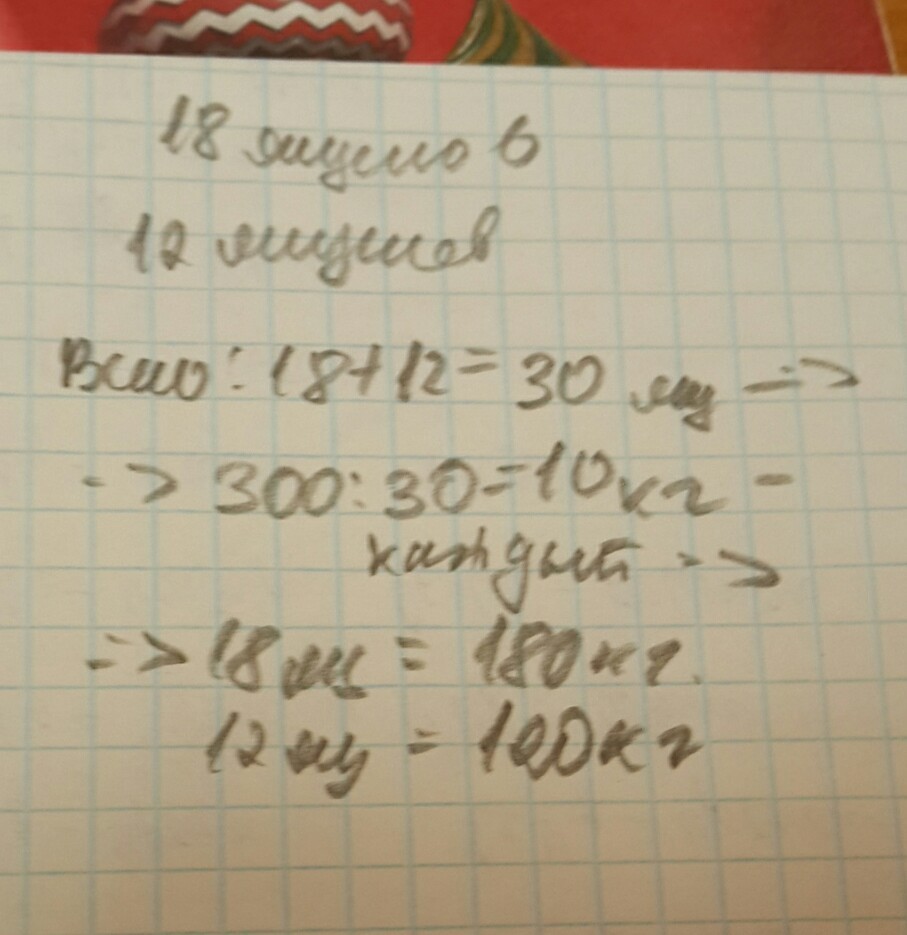 18 ящиков
12 ящиков
Всего: 18+12=30 ящ =>
=> 300:30=10кг -
каждый =>
=> 18 ящ = 180кг.
12 ящ = 120кг